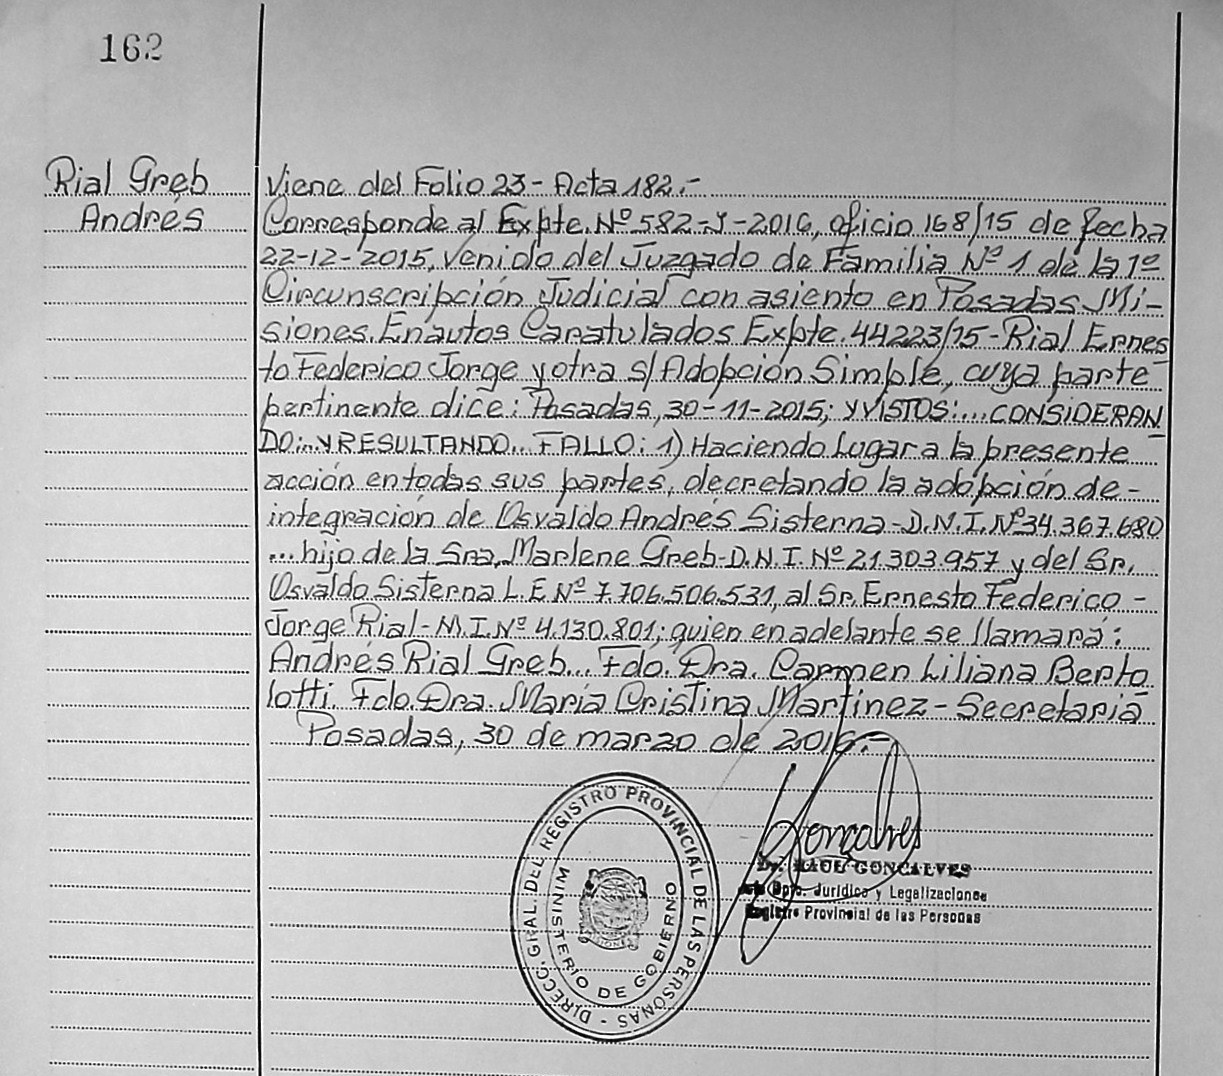 162
Rial Greb
Andrés
Viene del Folio 23 - Acta 182.-
Corresponde al Expte. Nº 582-Y-2016, oficio 168/15 de fecha
22-12-2015, venido del Juzgado de Familia Nº 1 de la 1º
Circunscripción Judicial con asiento en Posadas Mi-
siones. En autos Caratulados Expte. 44223/15 - Rial Ernes
to Federico Jorge y otra s/ Adopción Simple, cuya parte
pertinente dice: Posadas, 30-11-2015; Y VISTOS:... CONSIDERAN
DO:... Y RESULTANDO... FALLO: 1) Haciendo lugar a la presente
acción en todas sus partes, decretando la adopción de-
integración de Osvaldo Andrés Sisterna - D.N.I. Nº 34.367.680
... hijo de la Sra. Marlene Greb - D.N.I. Nº 21.303.957 y del Sr.
Osvaldo Sisterna L.E. Nº 7.706.506.531, al Sr. Ernesto Federico -
Jorge Rial - M.I. Nº 4.130.801; quien en adelante se llamará:
Andrés Rial Greb... Fdo. Dra. Carmen Liliana Berto
lotti. Fdo. Dra. María Cristina Martinez - Secretaria
Posadas, 30 de marzo de 2016.-
DIRECC. GRAL. DEL REGISTRO PROVINCIAL DE LAS PERSONAS -
MINISTERIO DE GOBIERNO
Gonçalves
Dr. RAUL GONCALVES
Dpto. Jurídica y Legalizaciones
Registro Provincial de las Personas